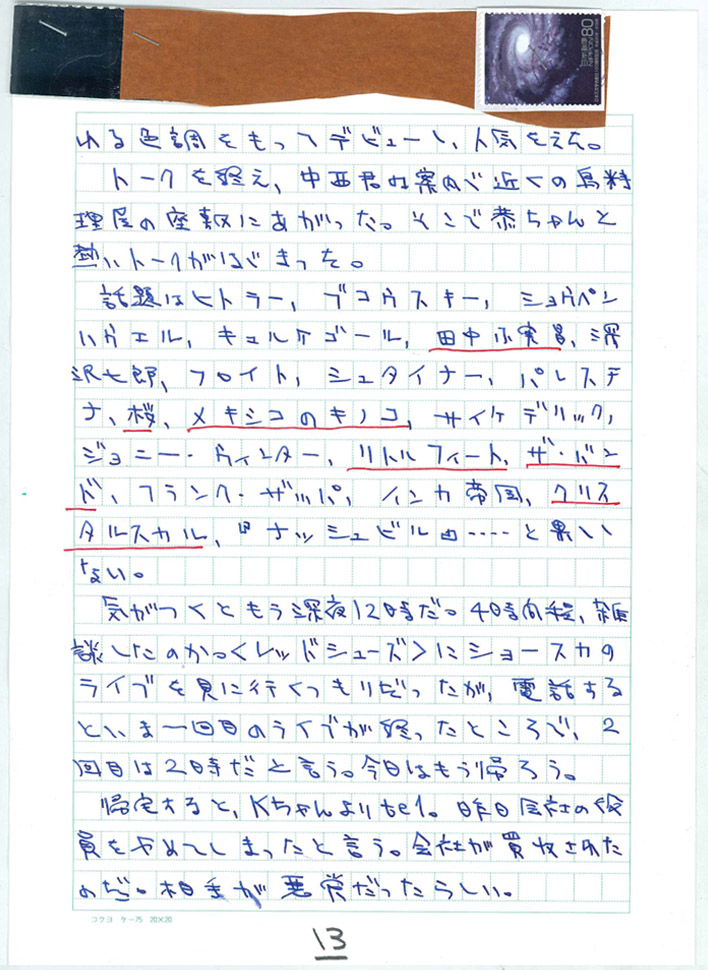 80 NIPPON
日本郵便
れる色調をもってデビューし、人気をえた。
トークを終え、中西君の案内で近くの鳥料
理屋の座敷にあがった。そこで恭ちゃんと
熱いトークがはじまった。
話題はヒトラー、ブコウスキー、ショウペン
ハウエル、キェルケゴール、田中小実昌、深
沢七郎、フロイト、シュタイナー、パレスチ
ナ、桜、メキシコのキノコ、サイケデリック、
ジョニー・ウィンター、リトルフィート、ザ・バン
ド、フランク・ザッパ、インカ帝国、クリス
タルスカル、『ナッシュビル』‥‥と果しい
ない。
気がつくともう深夜12時だ。4時間程、雑
談したのか。〈レッドシューズ〉にショースカの
ライブを見に行くつもりだったが、電話する
といま一回目のライブが終ったところで、2
回目は2時だと言う。今日はもう帰ろう。
帰宅すると、Kちゃんよりtel。昨日会社の役
員をやめてしまったと言う。会社が買収された
のだ。相手が悪党だったらしい。
コクヨ ケー75 20×20
13